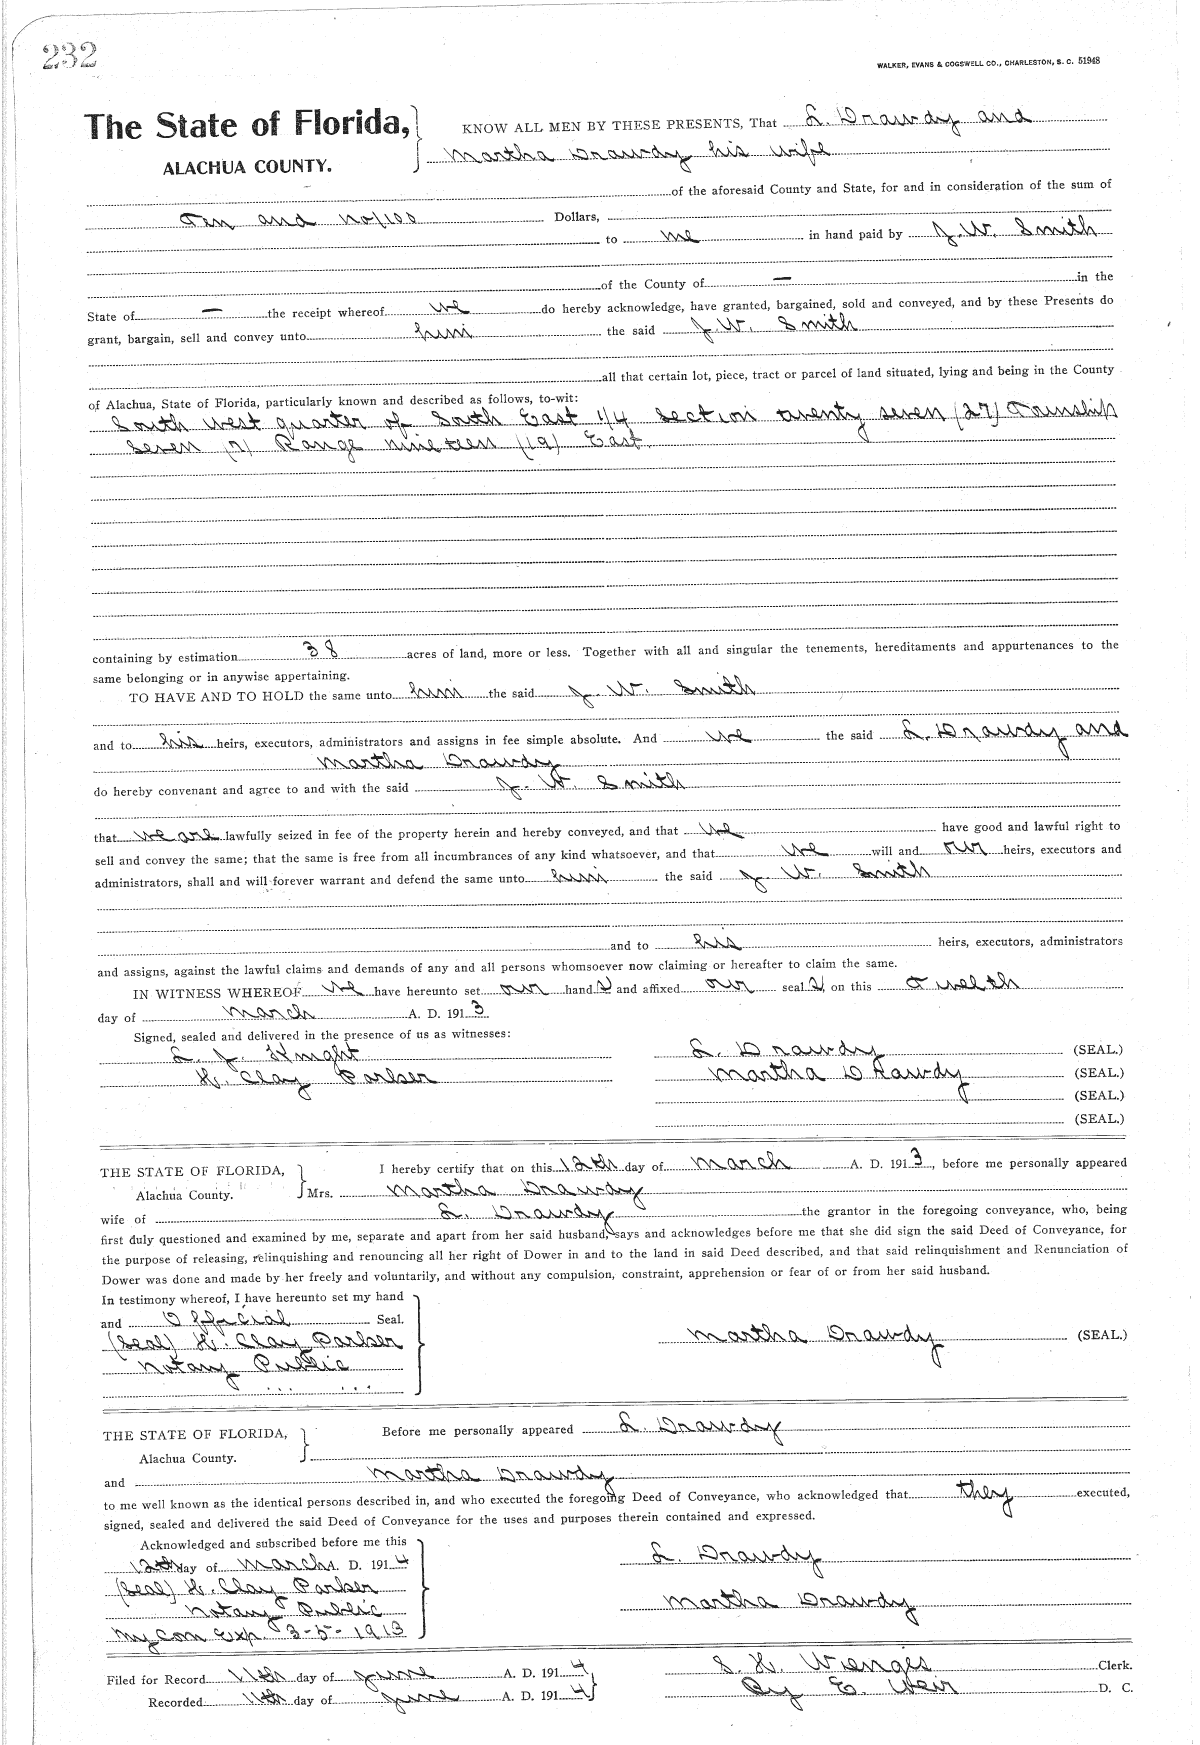 232
WALKER, EVANS & COGSWELL CO., CHARLESTON, S. C. 51948
The State of Florida, KNOW ALL MEN BY THESE PRESENTS, That L. Drawdy and
ALACHUA COUNTY. Martha Drawdy his wife
of the aforesaid County and State, for and in consideration of the sum of
Ten and no/100 Dollars,
to me in hand paid by J. W. Smith
of the County of — in the
State of — the receipt whereof we do hereby acknowledge, have granted, bargained, sold and conveyed, and by these Presents do
grant, bargain, sell and convey unto him the said J. W. Smith
all that certain lot, piece, tract or parcel of land situated, lying and being in the County
of Alachua, State of Florida, particularly known and described as follows, to-wit:
South west quarter of South East 1/4 Section twenty seven (27) Township
Seven (7) Range nineteen (19) East.
containing by estimation 38 acres of land, more or less. Together with all and singular the tenements, hereditaments and appurtenances to the
same belonging or in anywise appertaining.
TO HAVE AND TO HOLD the same unto him the said J. W. Smith
and to his heirs, executors, administrators and assigns in fee simple absolute. And we the said L. Drawdy and
Martha Drawdy
do hereby convenant and agree to and with the said J. W. Smith
that we are lawfully seized in fee of the property herein and hereby conveyed, and that we have good and lawful right to
sell and convey the same; that the same is free from all incumbrances of any kind whatsoever, and that we will and our heirs, executors and
administrators, shall and will forever warrant and defend the same unto him the said J. W. Smith
and to his heirs, executors, administrators
and assigns, against the lawful claims and demands of any and all persons whomsoever now claiming or hereafter to claim the same.
IN WITNESS WHEREOF we have hereunto set our hand s and affixed our seal s, on this Twelth
day of March A. D. 1913
Signed, sealed and delivered in the presence of us as witnesses:
L. J. Knight L. Drawdy (SEAL.)
H. Clay Parker Martha Drawdy (SEAL.)
(SEAL.)
(SEAL.)
THE STATE OF FLORIDA, I hereby certify that on this 12th day of March A. D. 1913, before me personally appeared
Alachua County. Mrs. Martha Drawdy
wife of L. Drawdy the grantor in the foregoing conveyance, who, being
first duly questioned and examined by me, separate and apart from her said husband, says and acknowledges before me that she did sign the said Deed of Conveyance, for
the purpose of releasing, relinquishing and renouncing all her right of Dower in and to the land in said Deed described, and that said relinquishment and Renunciation of
Dower was done and made by her freely and voluntarily, and without any compulsion, constraint, apprehension or fear of or from her said husband.
In testimony whereof, I have hereunto set my hand
and Official Seal.
(Seal) H. Clay Parker Martha Drawdy (SEAL.)
Notary Public
THE STATE OF FLORIDA, Before me personally appeared L. Drawdy
Alachua County.
and Martha Drawdy
to me well known as the identical persons described in, and who executed the foregoing Deed of Conveyance, who acknowledged that they executed,
signed, sealed and delivered the said Deed of Conveyance for the uses and purposes therein contained and expressed.
Acknowledged and subscribed before me this
12th day of March A. D. 1914 L. Drawdy
(Seal) H. Clay Parker
Notary Public Martha Drawdy
My Com Exp. 3-5-1913
Filed for Record 11th day of June A. D. 1914 S. H. Wienges Clerk.
Recorded 11th day of June A. D. 1914 By E. Weir D. C.